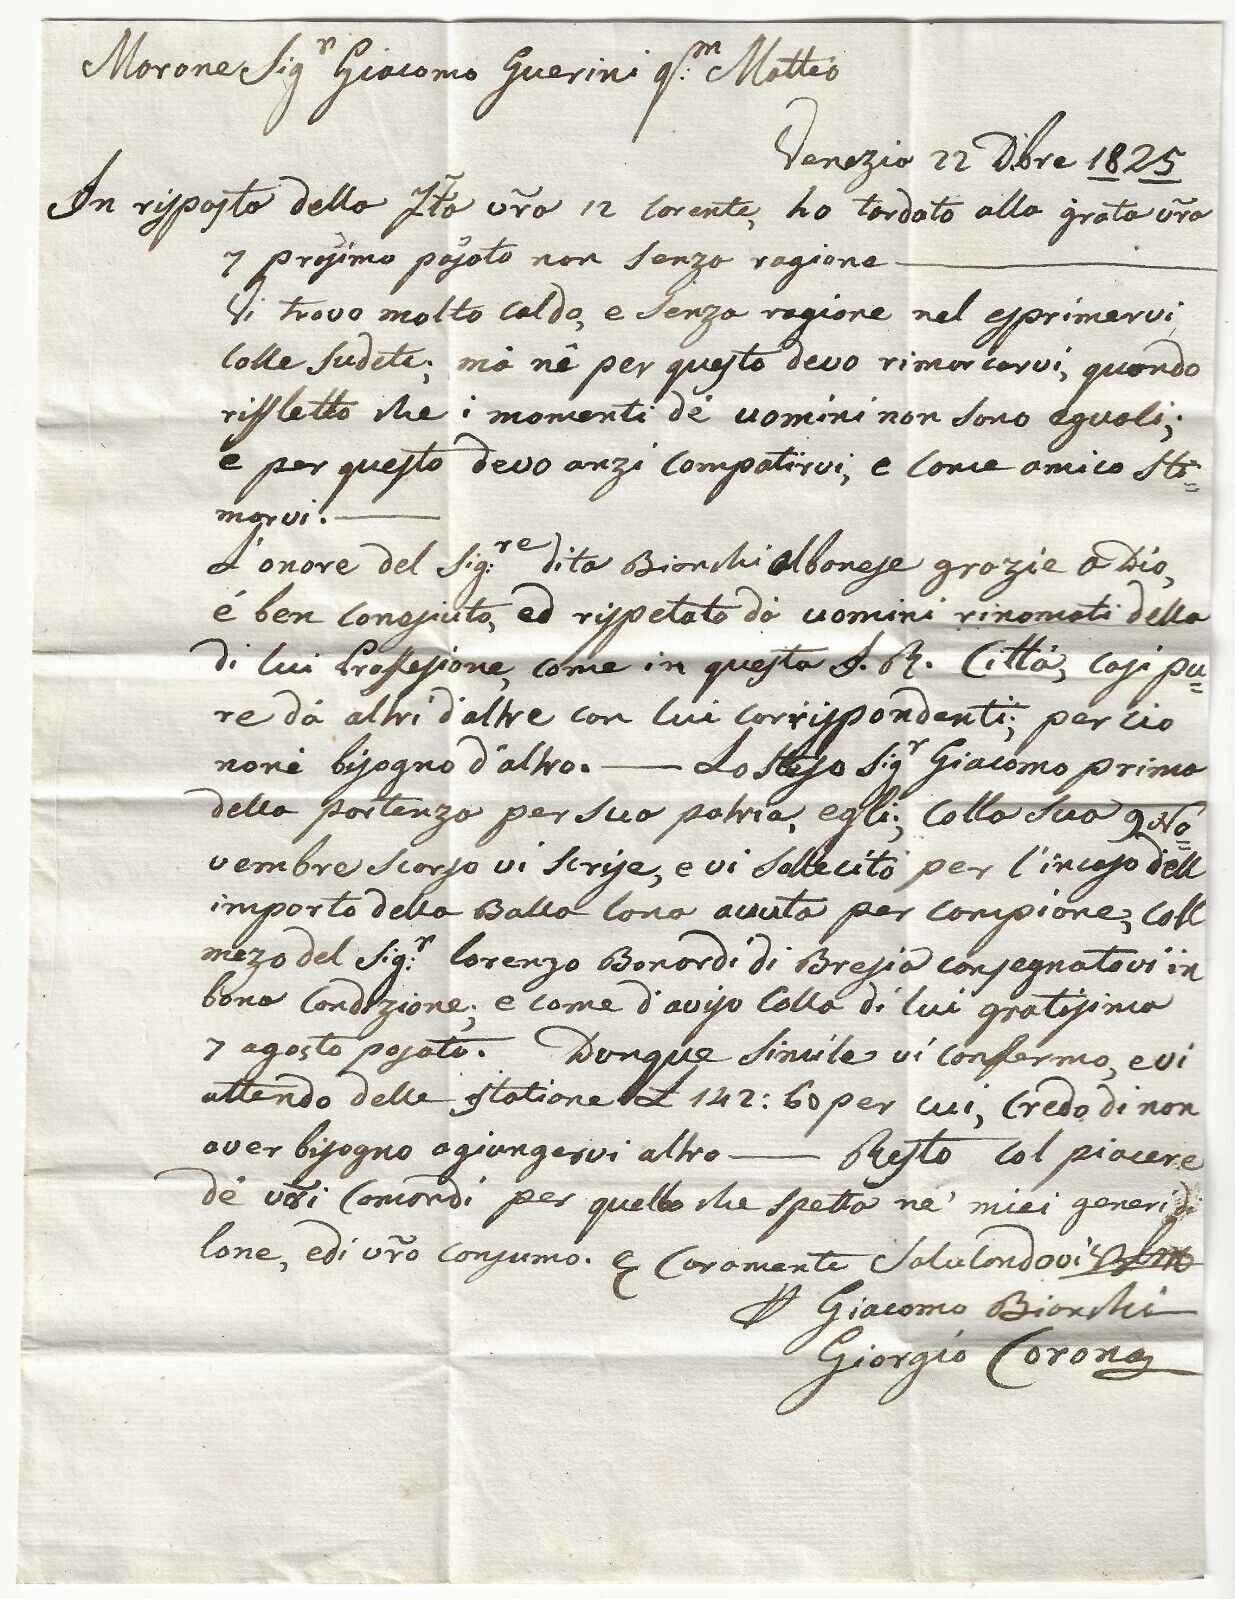 Marone Sig.r Giacomo Guerini q.m Matteo
Venezia 22 Dibre 1825
In risposta della vra 12 corente, ho tardato alla grata vra
7 prosimo pasato non senza ragione
Vi trovo molto caldo, e senza ragione nel esprimervi
colle sudete; mà nè per questo devo rimarcarvi, quando
riffletto che i momenti dé uomini non sono eguali;
e per questo devo anzi compatirvi, e come amico sti=
marvi.
L'onore del Sig.re dita Bianchi Albanese grazie a Dio,
é ben conosiuto, ed rispetato dà uomini rinomati della
di lui Proffesione, come in questa I. R. Città, così pu=
re dà altri d'altre con lui corrispondenti; per cio
non é bisogno d'altro. — Lo steso Sig.r Giacomo prima
della partenza per sua patria, egli; colla sua 9 No=
vembre scorso vi scrise, e vi sollecitò per l'incaso dell
importo della Balla lana avuta per campione, coll
mezo del Sig.r Lorenzo Bonardi di Bresia consegnatovi in
bona condizione; e come d'aviso colla di lui gratisima
7 agosto pasato. Dunque simile vi confermo, e vi
attendo delle statione £ 142:60 per cui, credo di non
aver bisogno agiungervi altro — Resto col piacere
dé vostri Comandi per quello che spetta né miei generi di
lane, e di vro consumo. E caramente salutandovi
P Giacomo Bianchi
Giorgio Corona